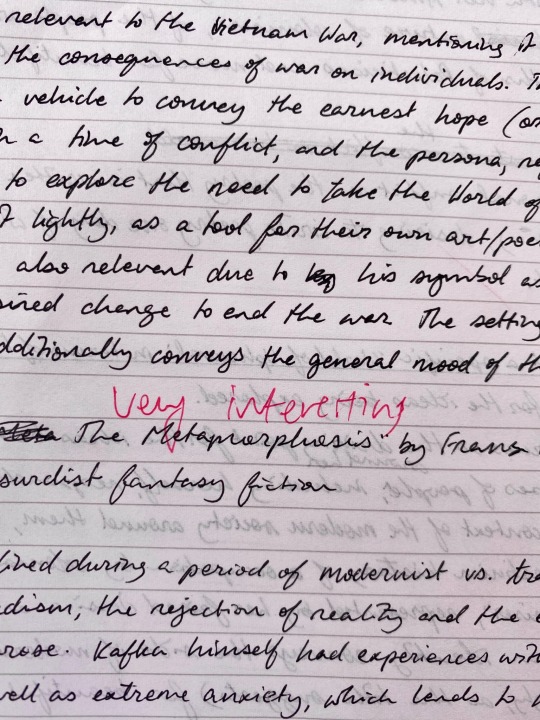 relevant to the Vietnam War, mentioning it
the consequences of war on individuals.
vehicle to convey the earnest hope
a time of conflict, and the persona,
to explore the need to take the World of
lightly, as a tool for their own art/poe
also relevant due to his symbol as
sired change to end the war. The setting
dditionally conveys the general mood of th
Very interesting
The Metamorphosis" by Franz
surdist fantasy fiction
lived during a period of modernist vs. tra
adism, the rejection of reality and the
prose. Kafka himself had experiences with
well as extreme anxiety, which lends to